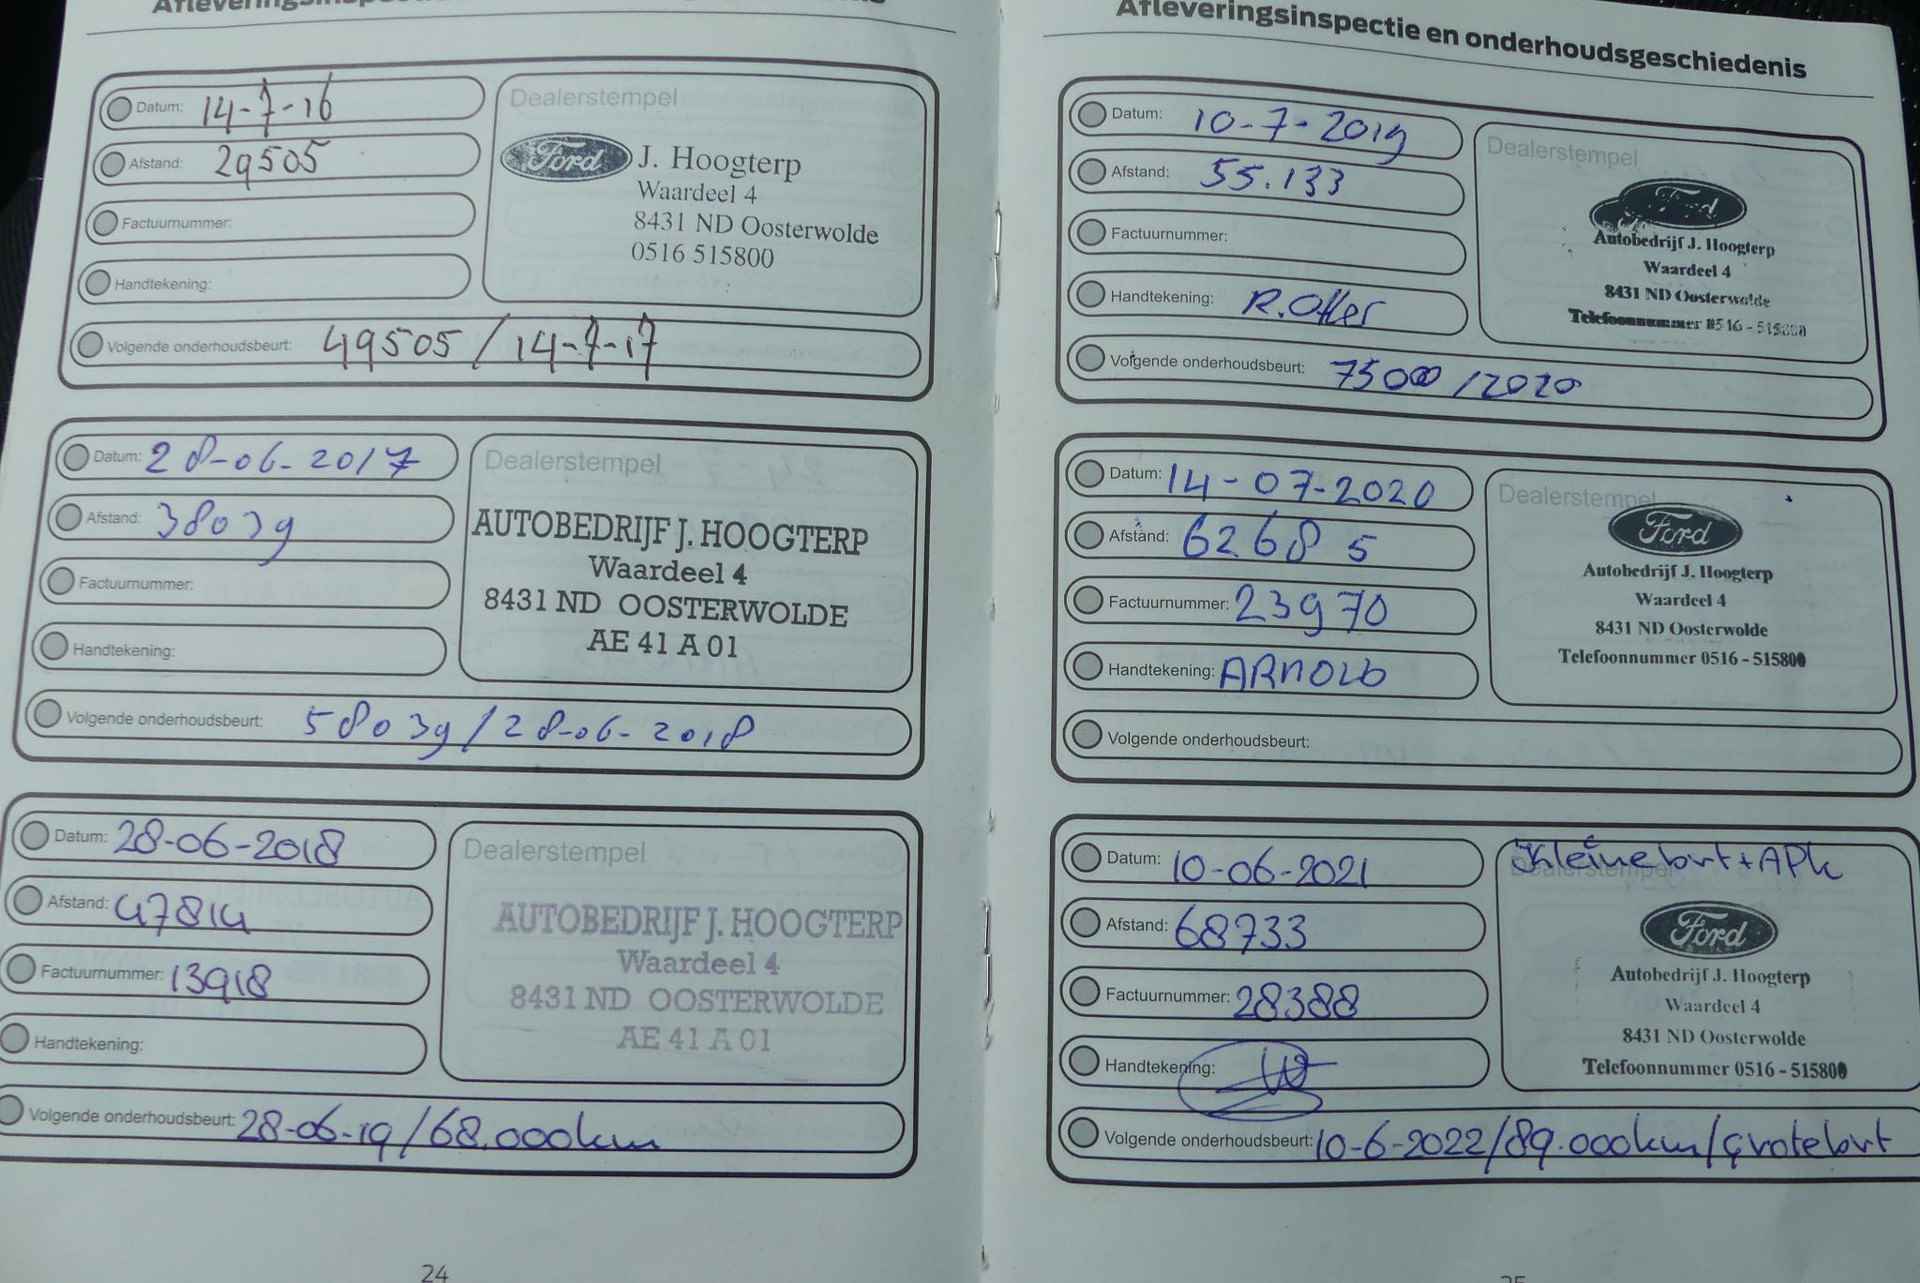 Afleveringsinspectie en onderhoudsgeschiedenis
Datum: 14-7-16
Afstand: 29505
Factuurnummer:
Handtekening:
Volgende onderhoudsbeurt: 49505 / 14-7-17
Dealerstempel
Ford J. Hoogterp
Waardeel 4
8431 ND Oosterwolde
0516 515800
Datum: 28-06-2017
Afstand: 38039
Factuurnummer:
Handtekening:
Volgende onderhoudsbeurt: 58039 / 28-06-2018
Dealerstempel
AUTOBEDRIJF J. HOOGTERP
Waardeel 4
8431 ND OOSTERWOLDE
AE 41 A 01
Datum: 28-06-2018
Afstand: 47814
Factuurnummer: 13918
Handtekening:
Volgende onderhoudsbeurt: 28-06-19/68.000km
Dealerstempel
AUTOBEDRIJF J. HOOGTERP
Waardeel 4
8431 ND OOSTERWOLDE
AE 41 A 01
24
Afleveringsinspectie en onderhoudsgeschiedenis
Datum: 10-7-2019
Afstand: 55.133
Factuurnummer:
Handtekening: R.
Volgende onderhoudsbeurt: 75000 /2020
Dealerstempel
Ford
Autobedrijf J. Hoogterp
Waardeel 4
8431 ND Oosterwolde
Telefoonnummer 0516 - 515800
Datum: 14-07-2020
Afstand: 62685
Factuurnummer: 23970
Handtekening: ARNOLD
Volgende onderhoudsbeurt:
Dealerstempel
Ford
Autobedrijf J. Hoogterp
Waardeel 4
8431 ND Oosterwolde
Telefoonnummer 0516 - 515800
Datum: 10-06-2021
Afstand: 68733
Factuurnummer: 28388
Handtekening:
Volgende onderhoudsbeurt: 10-6-2022/89.000km/grotebrt
Kleinebrt + APK
Dealerstempel
Ford
Autobedrijf J. Hoogterp
Waardeel 4
8431 ND Oosterwolde
Telefoonnummer 0516 - 515800
25